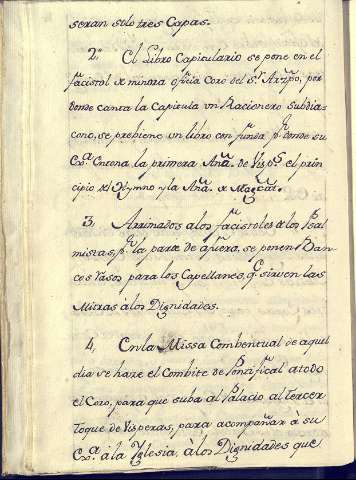 seran solo tres Capas.
2.ª El Libro Capitulario se pone en el
facistol de minora oficia Coro del S.r Arzpo, por
donde canta la Capitula un Racionero subdia-
cono, se prebiene un libro con funda p.a donde su
Ex.a Entona la primera Aña. de Visp.s el prin-
cipio del Hymno y la Aña. de Magcat.
3, Arrimados alos facistoles de los Psal-
mistas, p.r la parte de afuera, se ponen Ban-
cos rasos para los Capellanes, q.e sirven las
Mitras á los Dignidades.
4, En la Missa Combentual de aquel
dia se haze el Combite de Pontifical a todo
el Coro, para que suba al Palacio al tercer
toque de Visperas, para acompañar à su
Ex.a á la Yglesia, à los Dignidades que